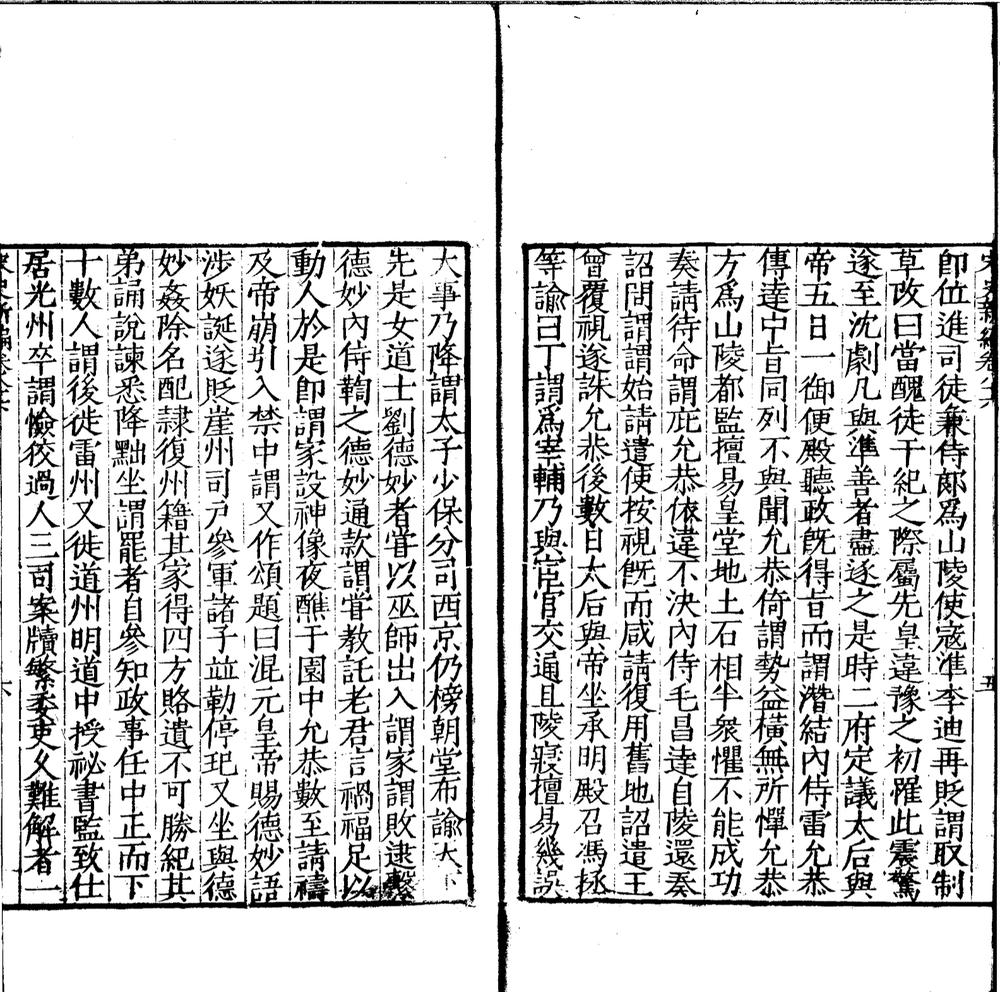 宋史新編卷八十六
五
即位進司徒兼侍郎為山陵使寇準李迪再貶謂取制
草改曰當醜徒干紀之際屬先皇違豫之初罹此震驚
遂至沈劇凡與準善者盡逐之是時二府定議太后與
帝五日一御便殿聽政旣得旨而謂潛結內侍雷允恭
傳達中旨同列不與聞允恭倚謂勢益橫無所憚允恭
方爲山陵都監擅易皇堂地土石相半衆懼不能成功
奏請待命謂庇允恭依違不決內侍毛昌達自陵還奏
詔問謂謂始請遣使按視旣而咸請復用舊地詔遣王
曾覆視遂誅允恭後數日太后與帝坐承明殿召馮拯
等諭曰丁謂爲宰輔乃與宦官交通且陵寢擅易幾誤
大事乃降謂太子少保分司西京仍榜朝堂布諭大下
先是女道士劉德妙者嘗以巫師出入謂家謂敗逮繫
德妙內侍鞫之德妙通款謂嘗教託老君言禍福足以
動人於是即謂家設神像夜醮于園中允恭數至請禱
及帝崩引入禁中謂又作頌題曰混元皇帝賜德妙語
涉妖誕遂貶崖州司戶參軍諸子並勒停玘又坐與德
妙姦除名配隸復州籍其家得四方賂遺不可勝紀其
弟誦說諫悉降黜坐謂罷者自參知政事任中正而下
十數人謂後徙雷州又徙道州明道中授祕書監致仕
居光州卒謂憸狡過人三司案牘繁委吏久難解者一
六